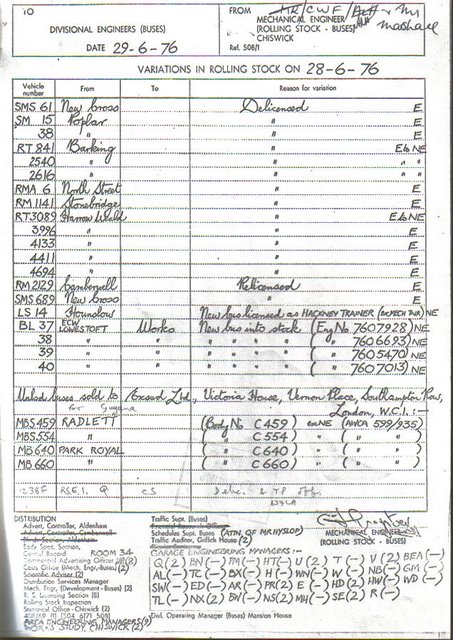 TO
DIVISIONAL ENGINEERS (BUSES)
DATE 29-6-76
FROM
MECHANICAL ENGINEER
(ROLLING STOCK - BUSES)
CHISWICK
Ref. 508/1
VARIATIONS IN ROLLING STOCK ON 28-6-76
Vehicle number From To Reason for variation
SMS 61 New Cross Delicensed E
SM 15 Poplar " E
38 " " E
RT 841 Barking " Eb NE
2540 " " " "
2616 " " " "
RMA 6 North Street " E
RM 1141 Stonebridge " E
RT3089 Harrow Weald " Eb NE
3996 " " E
4133 " " E
4411 " " E
4694 " " E
RM 2129 Camberwell Relicensed E
SMS 689 New Cross " E
LS 14 Hounslow New bus licensed as HACKNEY TRAINER NE
BL 37 ECW LOWESTOFT Works New bus into stock (Eng No 7607928) NE
38 " " " " " " ( " 7606693) NE
39 " " " " " " ( " 7605470) NE
40 " " " " " " ( " 7607013) NE
buses sold to Ltd., Victoria House, Vernon Place, Southampton Row,
for Guyana London, W.C.1. :-
MBS 459 RADLETT (Body No C459) NE (AWCA 599/935)
MBS 554 " ( " C554) " ( " )
MB 640 PARK ROYAL ( " C640) " ( " )
MB 660 " ( " C660) " ( " )
1238F CS
DISTRIBUTION
Advert. Controller, Aldenham
Advert. Controller, Camberwell
Body Supt. Section,
Central Record ROOM 34
Commercial Advertising Officer
Costs Office (Mech. Engr. Buses) (2)
Scientific Adviser (2)
Distribution Services Manager
Mech. Engr. (Development - Buses) (2)
R. S. Licensing Section (8)
Rolling Stock Inspection
Statistical Office - Chiswick (2)
AREA ENGINEERING MANAGERS (9)
WORKS STUDY, CHISWICK (2)
Traffic Supt. (Buses)
Schedules Supt. (Buses) (ATN. OF MR HYSLOP)
Traffic Auditor, Griffith House (2)
MECHANICAL ENGINEER
(ROLLING STOCK - BUSES)
GARAGE ENGINEERING MANAGERS :-
Q (2) BN (-) TM (-) HT (-) U (2) T (-) V (2) BEA (-)
AL (-) TC (-) BX (-) H (-) WN (-) W (-) NB (-) GM (-)
SW (-) ED (-) AR (-) PR (2) E (-) HD (2) HW (-) WD (-)
TL (-) NX (2) BW (-) NS (2) MH (-) SE (2) R (-)
Divl. Operating Manager (Buses) Mansion House